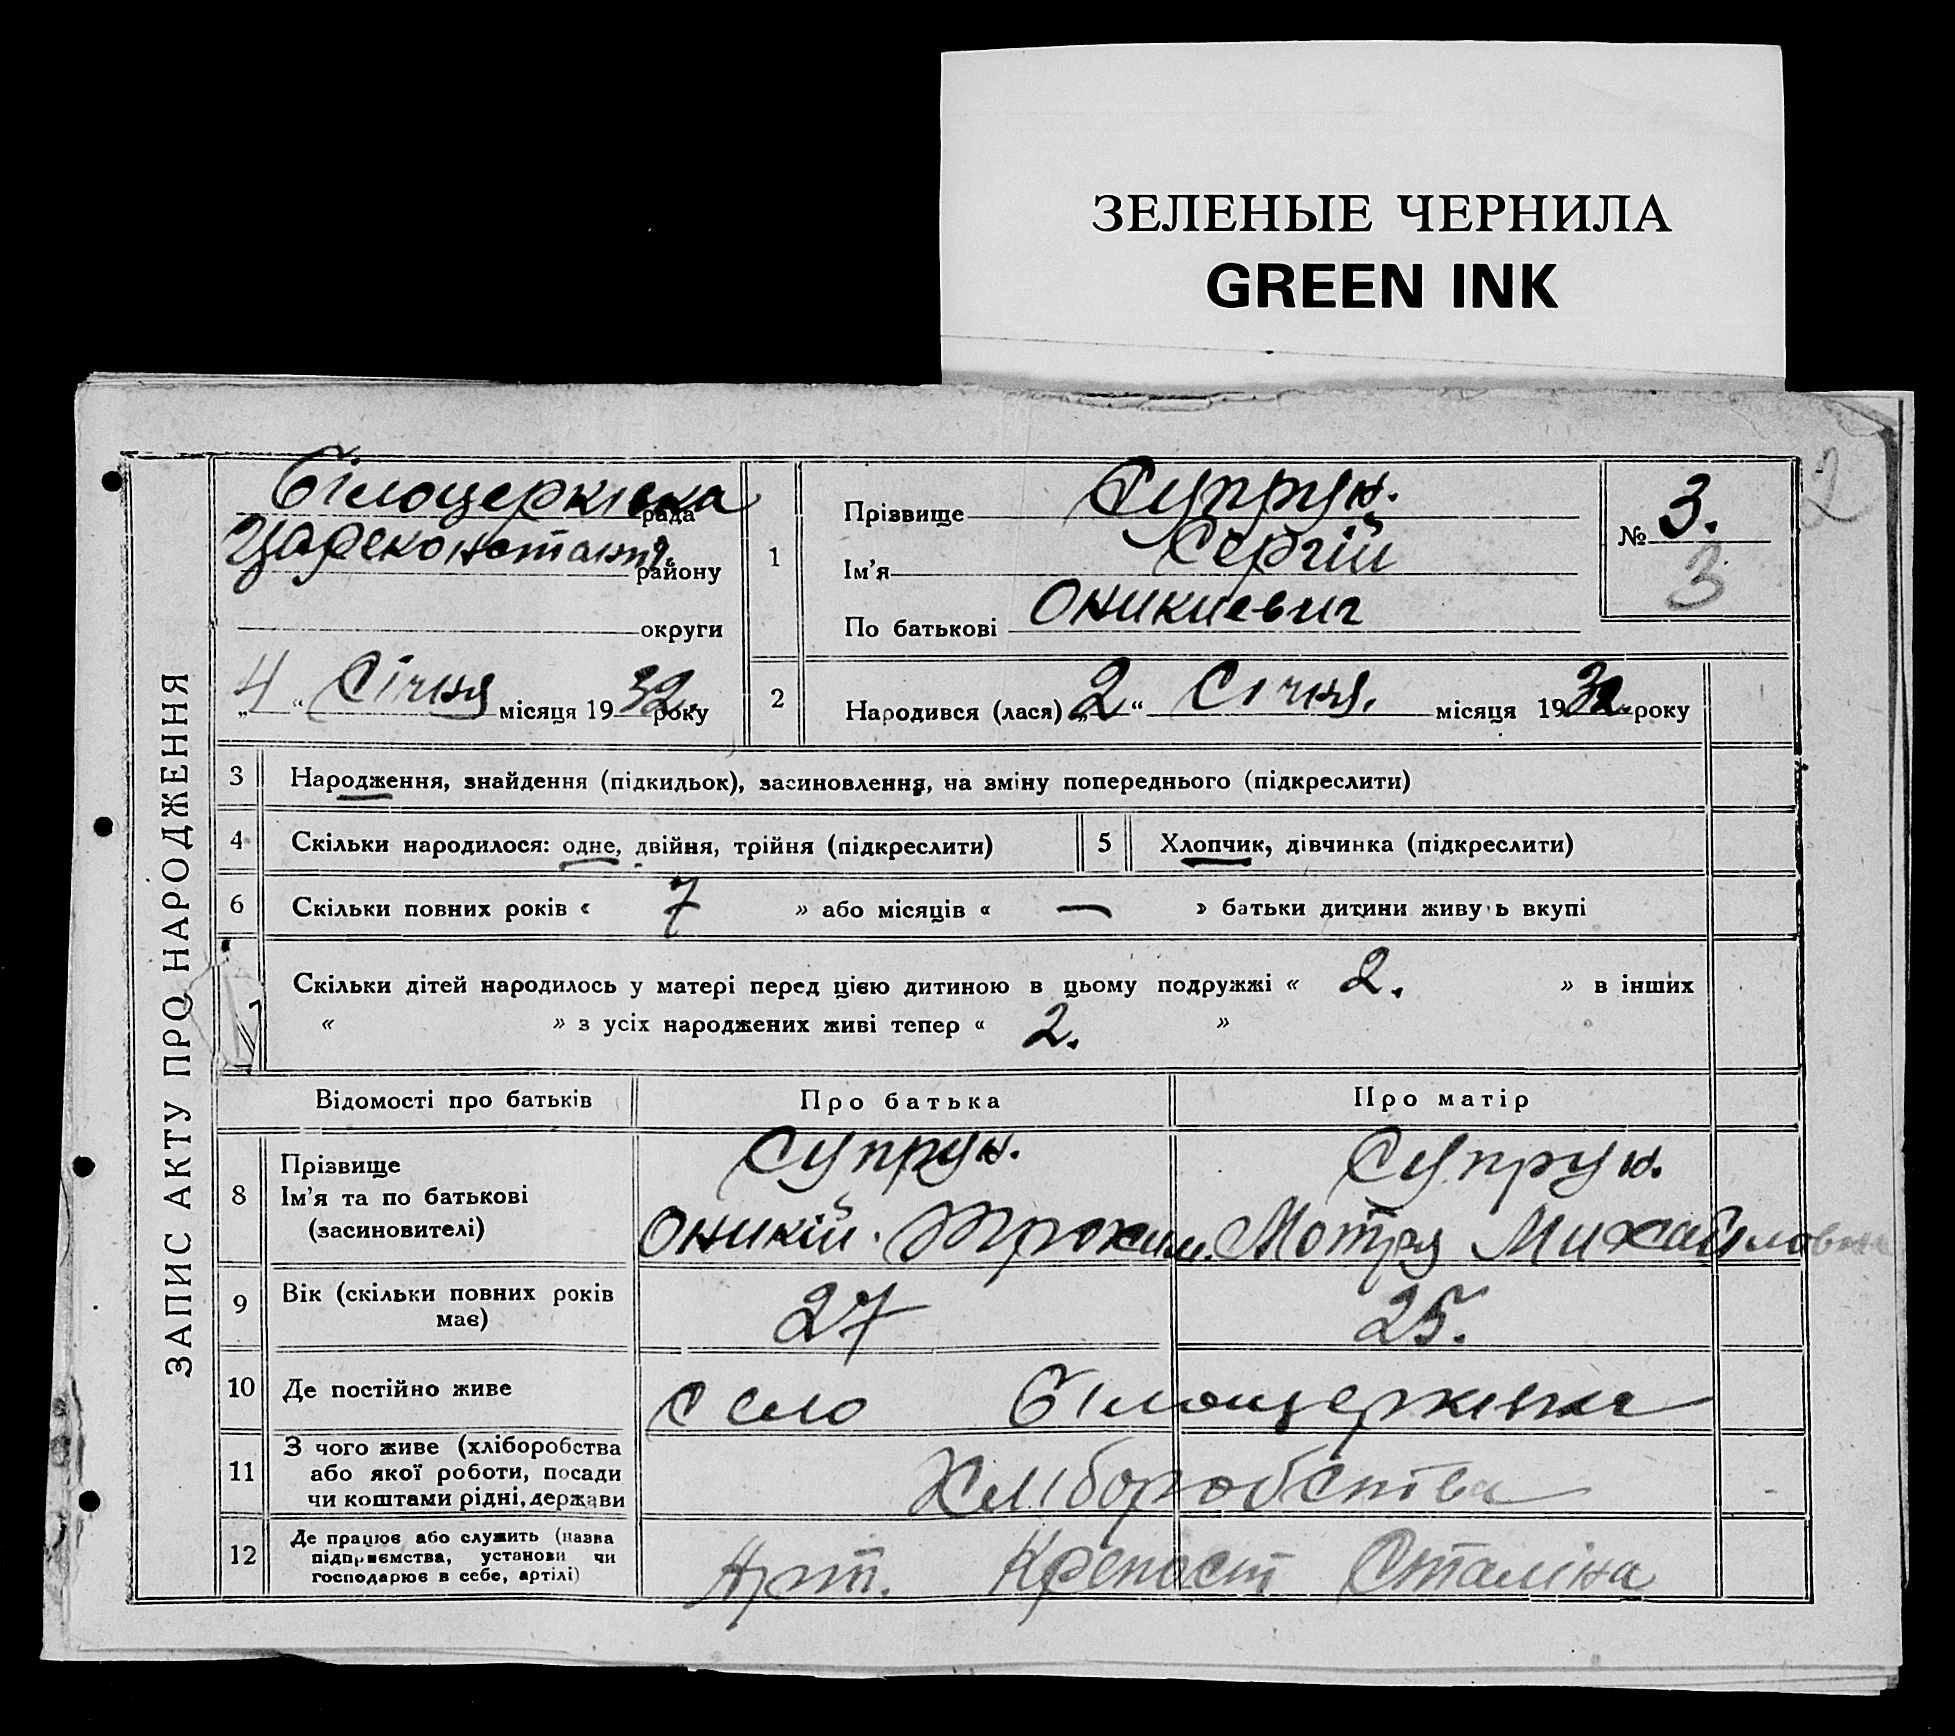 ЗЕЛЕНЫЕ ЧЕРНИЛА
GREEN INK
2
ЗАПИС АКТУ ПРО НАРОДЖЕННЯ
Білоцерківка рада
Царекостант. району
округи
„4“ Січня місяця 1932. року
1
Прізвище Супрун.
Ім'я Сергій
По батькові Оникиевич
№ 3.
3
2
Народився (лася) „2“ Січня. місяця 1932. року
3 Народження, знайдення (підкидьок), засиновлення, на зміну попереднього (підкреслити)
4 Скільки народилося: одне, двійня, трійня (підкреслити) 5 Хлопчик, дівчинка (підкреслити)
6 Скільки повних років « 7 » або місяців « — » батьки дитини живуть вкупі
7 Скільки дітей народилось у матері перед цією дитиною в цьому подружжі « 2. » в інших
« » з усіх народжених живі тепер « 2. »
Відомості про батьків Про батька Про матір
8 Прізвище Супрун. Супрун.
Ім'я та по батькові Оникій. Трохим. Мотря Михайловна
(засиновителі)
9 Вік (скільки повних років має) 27 25.
10 Де постійно живе село Білоцерківка
11 З чого живе (хліборобства
або якої роботи, посади
чи коштами рідні, держави Хліборобства
12 Де працює або служить (назва
підприємства, установи чи
господарює в себе, артілі) Арт. Крепост Сталіна